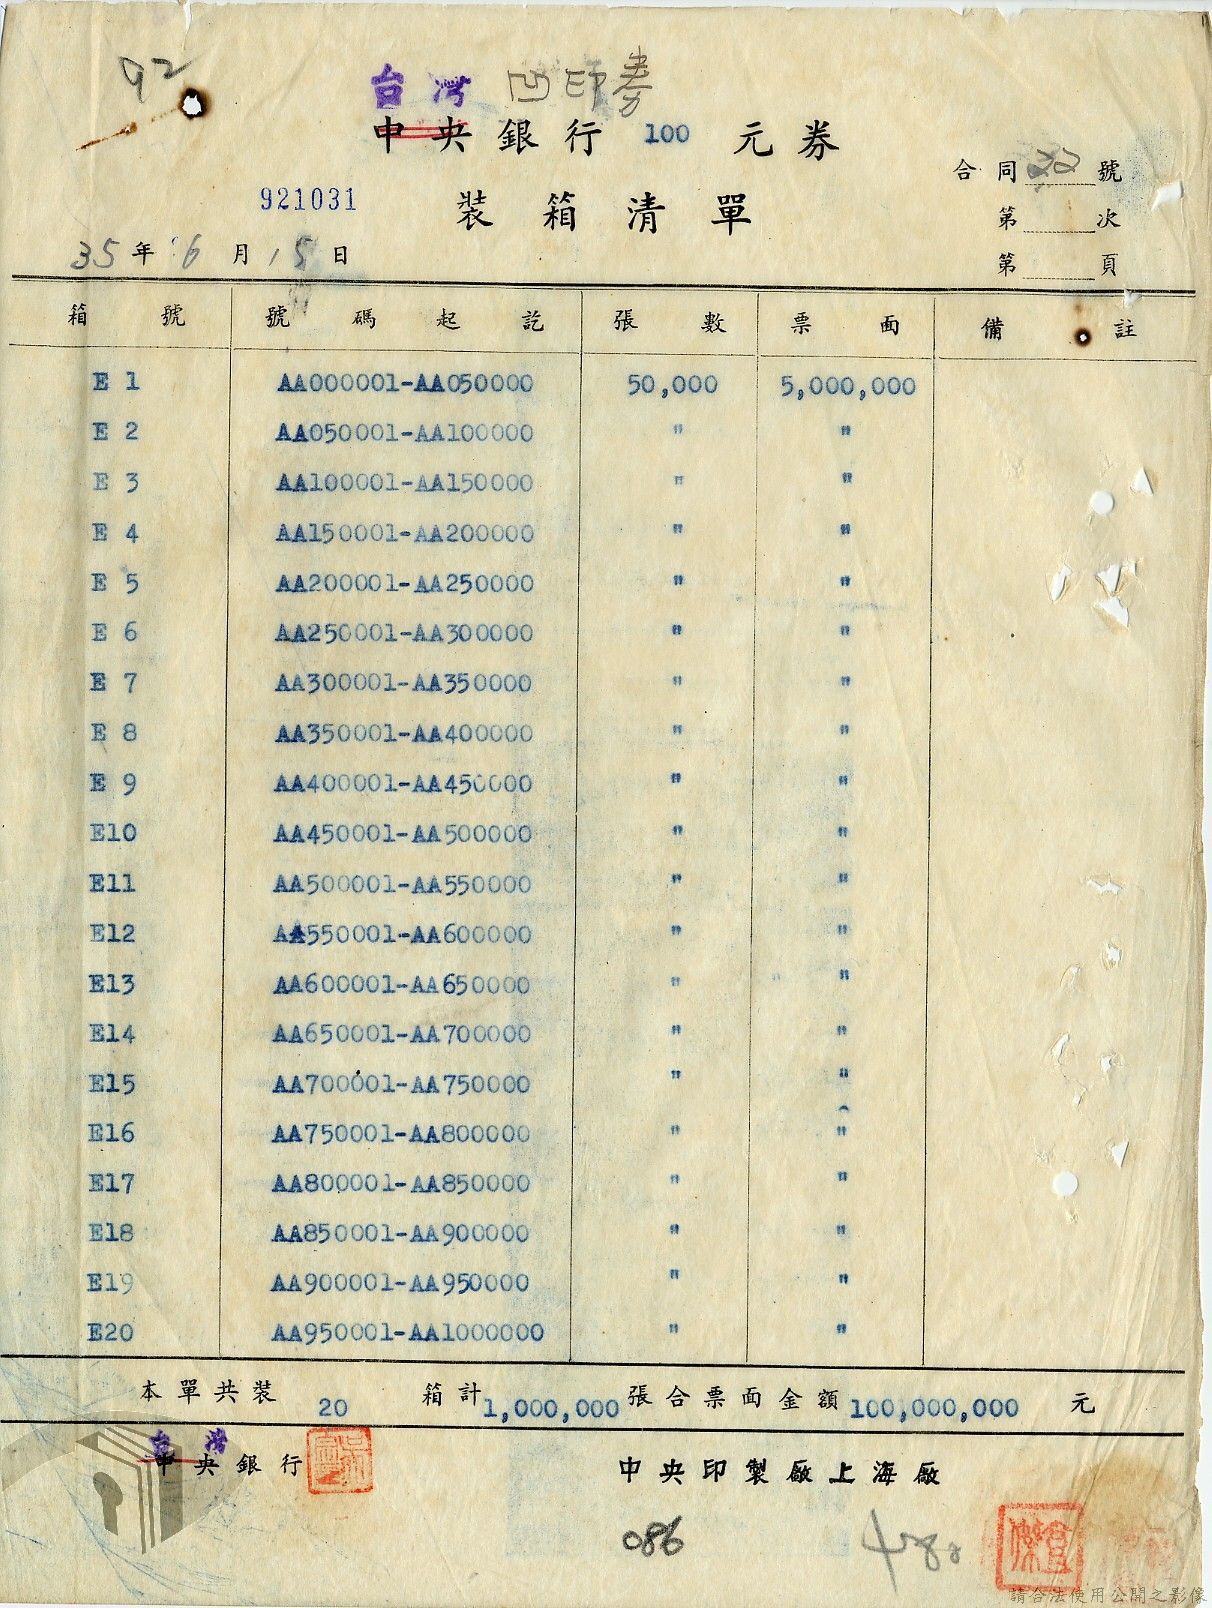 92
台灣 凹印券
中央銀行 100 元券
合同 22 號
921031 裝箱清單
第 次
35 年 6 月 15 日
第 頁
箱號 號碼起訖 張數 票面 備註
E 1 AA000001-AA050000 50,000 5,000,000
E 2 AA050001-AA100000 " "
E 3 AA100001-AA150000 " "
E 4 AA150001-AA200000 " "
E 5 AA200001-AA250000 " "
E 6 AA250001-AA300000 " "
E 7 AA300001-AA350000 " "
E 8 AA350001-AA400000 " "
E 9 AA400001-AA450000 " "
E10 AA450001-AA500000 " "
E11 AA500001-AA550000 " "
E12 AA550001-AA600000 " "
E13 AA600001-AA650000 " "
E14 AA650001-AA700000 " "
E15 AA700001-AA750000 " "
E16 AA750001-AA800000 " "
E17 AA800001-AA850000 " "
E18 AA850001-AA900000 " "
E19 AA900001-AA950000 " "
E20 AA950001-AA1000000 " "
本單共裝 20 箱計 1,000,000 張合票面金額 100,000,000 元
台灣
中央銀行 中央印製廠上海廠
086
請合法使用公開之影像